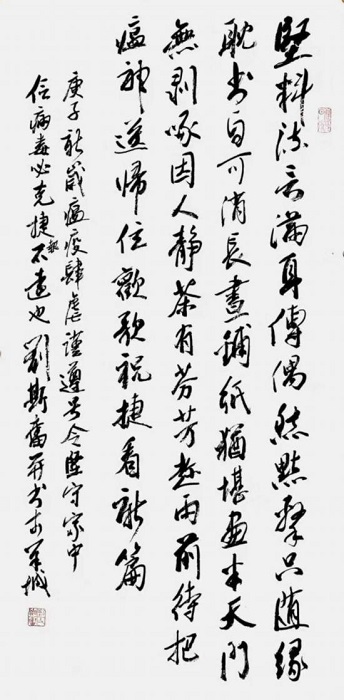 堅料流言滿耳傳偶然點擊只隨緣
耽書自可消長晝鋪紙猶堪畫半天門
無剝啄因人靜茶有芬芳趁雨前待把
瘟神送歸位歡歌祝捷看新篇
庚子新歲瘟疫肆虐謹遵号令堅守家中
信病毒必克捷報不遠也劉斯奮并書於羊城